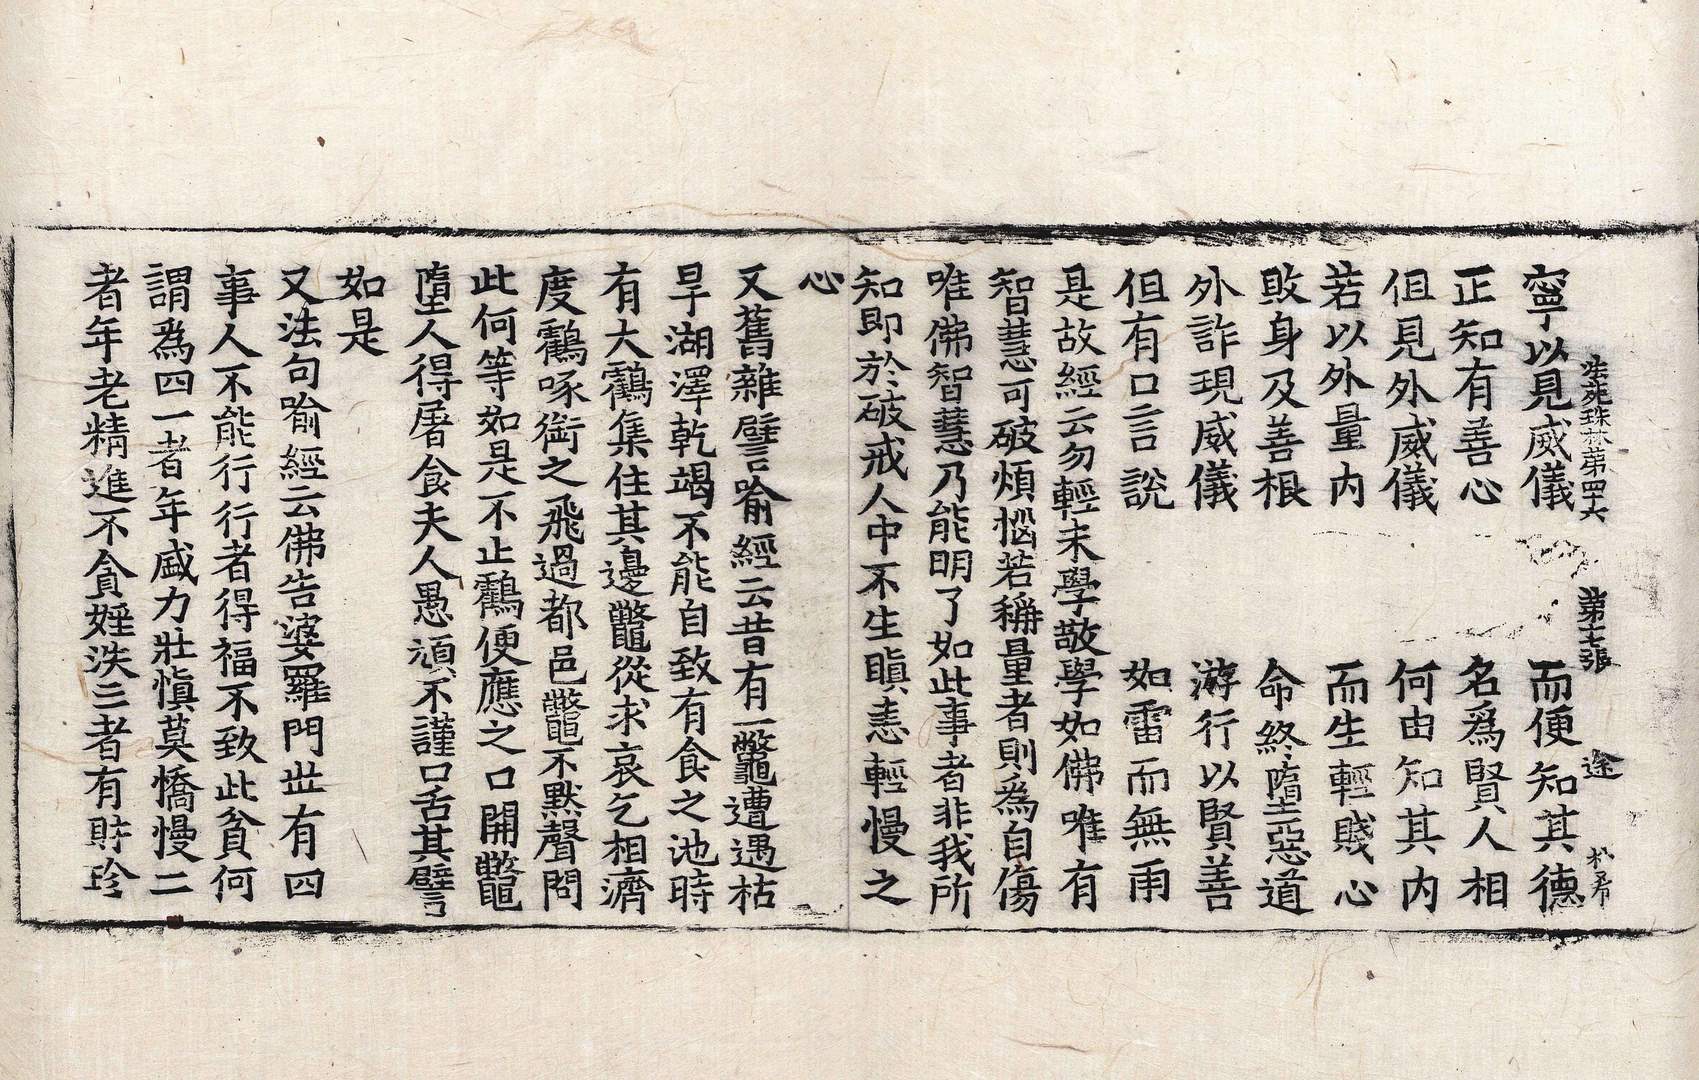 法苑珠林第四十六 第十七張 途
寧以見威儀 而便知其德
正知有善心 名爲賢人相
但見外威儀 何由知其内
若以外量内 而生輕賤心
敗身及善根 命終墮惡道
外詐現威儀 游行以賢善
但有口言說 如雷而無雨
是故經云勿輕未學敬學如佛唯有
智慧可破煩惱若稱量者則爲自傷
唯佛智慧乃能明了如此事者非我所
知即於破戒人中不生瞋恚輕慢之
心
又舊雜譬喻經云昔有一鼈遭遇枯
旱湖澤乾竭不能自致有食之池時
有大鸖集住其邊鼈從求哀乞相濟
度鸖啄銜之飛過都邑鼈不默聲問
此何等如是不止鸖便應之口開鼈
墮人得屠食夫人愚頑不謹口舌其譬
如是
又法句喻經云佛告婆羅門世有四
事人不能行行者得福不致此貧何
謂爲四一者年盛力壯慎莫憍慢二
者年老精進不貪婬泆三者有財珍